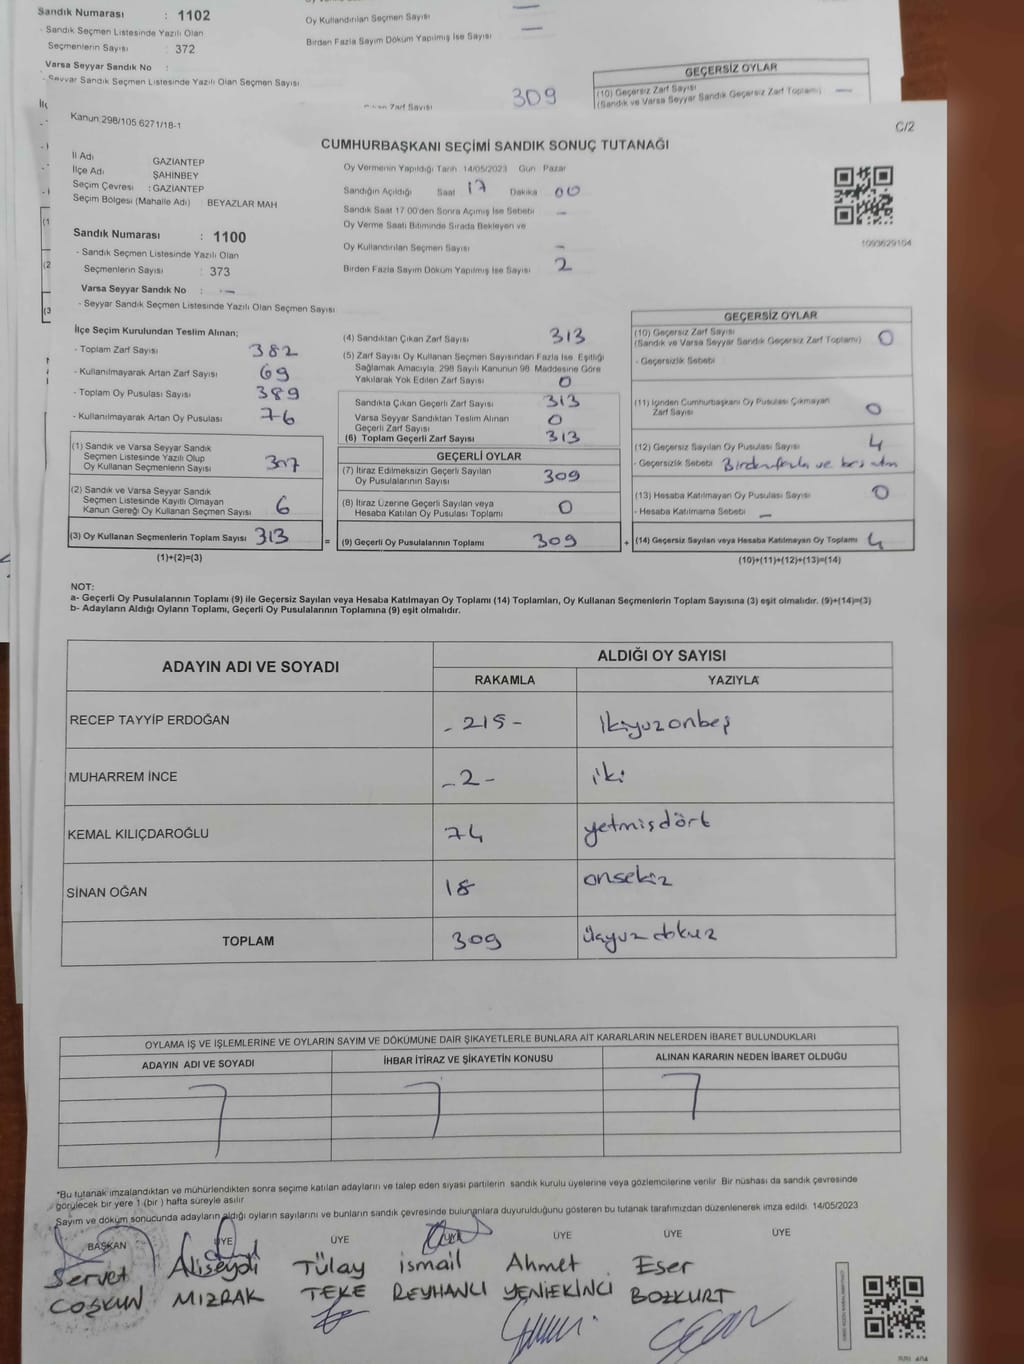 Sandık Numarası : 1102
- Sandık Seçmen Listesinde Yazılı Olan
Seçmenlerin Sayısı : 372
Varsa Seyyar Sandık No :
- Seyyar Sandık Seçmen Listesinde Yazılı Olan Seçmen Sayısı
Oy Kullandırılan Seçmen Sayısı —
Birden Fazla Sayım Döküm Yapılmış İse Sayısı —
Zarf Sayısı 309
GEÇERSİZ OYLAR
(10) Geçersiz Zarf Sayısı
(Sandık ve Varsa Seyyar Sandık Geçersiz Zarf Toplamı) —
Kanun:298/105 6271/18-1
C/2
CUMHURBAŞKANI SEÇİMİ SANDIK SONUÇ TUTANAĞI
İl Adı GAZİANTEP
İlçe Adı ŞAHİNBEY
Seçim Çevresi : GAZİANTEP
Seçim Bölgesi (Mahalle Adı) : BEYAZLAR MAH
Oy Vermenin Yapıldığı Tarih 14/05/2023 Gün Pazar
Sandığın Açıldığı Saat 17 Dakika 00
Sandık Saat 17.00'den Sonra Açımış İse Sebebi —
Oy Verme Saati Bitiminde Sırada Bekleyen ve
Oy Kullandırılan Seçmen Sayısı —
Birden Fazla Sayım Döküm Yapılmış İse Sayısı 2
1093629104
Sandık Numarası : 1100
- Sandık Seçmen Listesinde Yazılı Olan
Seçmenlerin Sayısı : 373
Varsa Seyyar Sandık No : —
- Seyyar Sandık Seçmen Listesinde Yazılı Olan Seçmen Sayısı
İlçe Seçim Kurulundan Teslim Alınan;
- Toplam Zarf Sayısı 382
- Kullanılmayarak Artan Zarf Sayısı 69
- Toplam Oy Pusulası Sayısı 389
- Kullanılmayarak Artan Oy Pusulası 76
(1) Sandık ve Varsa Seyyar Sandık
Seçmen Listesinde Yazılı Olup
Oy Kullanan Seçmenlerin Sayısı 307
(2) Sandık ve Varsa Seyyar Sandık
Seçmen Listesinde Kayıtlı Olmayan
Kanun Gereği Oy Kullanan Seçmen Sayısı 6
(3) Oy Kullanan Seçmenlerin Toplam Sayısı 313
(1)+(2)=(3)
(4) Sandıktan Çıkan Zarf Sayısı 313
(5) Zarf Sayısı Oy Kullanan Seçmen Sayısından Fazla İse, Eşitliği
Sağlamak Amacıyla, 298 Sayılı Kanunun 98. Maddesine Göre
Yakılarak Yok Edilen Zarf Sayısı 0
Sandıkta Çıkan Geçerli Zarf Sayısı 313
Varsa Seyyar Sandıktan Teslim Alınan
Geçerli Zarf Sayısı 0
(6) Toplam Geçerli Zarf Sayısı 313
GEÇERLİ OYLAR
(7) İtiraz Edilmeksizin Geçerli Sayılan
Oy Pusulalarının Sayısı 309
(8) İtiraz Üzerine Geçerli Sayılan veya
Hesaba Katılan Oy Pusulası Toplamı 0
= (9) Geçerli Oy Pusulalarının Toplamı 309
GEÇERSİZ OYLAR
(10) Geçersiz Zarf Sayısı
(Sandık ve Varsa Seyyar Sandık Geçersiz Zarf Toplamı) 0
- Geçersizlik Sebebi
(11) İçinden Cumhurbaşkanı Oy Pusulası Çıkmayan
Zarf Sayısı 0
(12) Geçersiz Sayılan Oy Pusulası Sayısı 4
- Geçersizlik Sebebi Birden fazla ve
(13) Hesaba Katılmayan Oy Pusulası Sayısı 0
- Hesaba Katılmama Sebebi —
+ (14) Geçersiz Sayılan veya Hesaba Katılmayan Oy Toplamı 4
(10)+(11)+(12)+(13)=(14)
NOT:
a- Geçerli Oy Pusulalarının Toplamı (9) ile Geçersiz Sayılan veya Hesaba Katılmayan Oy Toplamı (14) Toplamları, Oy Kullanan Seçmenlerin Toplam Sayısına (3) eşit olmalıdır. (9)+(14)=(3)
b- Adayların Aldığı Oyların Toplamı, Geçerli Oy Pusulalarının Toplamına (9) eşit olmalıdır.
ADAYIN ADI VE SOYADI ALDIĞI OY SAYISI
RAKAMLA YAZIYLA
RECEP TAYYİP ERDOĞAN - 215 - ikiyüzonbeş
MUHARREM İNCE - 2 - iki
KEMAL KILIÇDAROĞLU 74 yetmişdört
SİNAN OĞAN 18 onsekiz
TOPLAM 309 üçyüzdokuz
OYLAMA İŞ VE İŞLEMLERİNE VE OYLARIN SAYIM VE DÖKÜMÜNE DAİR ŞİKAYETLERLE BUNLARA AİT KARARLARIN NELERDEN İBARET BULUNDUKLARI
ADAYIN ADI VE SOYADI İHBAR İTİRAZ VE ŞİKAYETİN KONUSU ALINAN KARARIN NEDEN İBARET OLDUĞU
*Bu tutanak imzalandıktan ve mühürlendikten sonra seçime katılan adayların ve talep eden siyasi partilerin sandık kurulu üyelerine veya gözlemcilerine verilir. Bir nüshası da sandık çevresinde
görülecek bir yere 1 (bir) hafta süreyle asılır
Sayım ve döküm sonucunda adayların aldığı oyların sayılarını ve bunların sandık çevresinde bulunanlara duyurulduğunu gösteren bu tutanak tarafımızdan düzenlenerek imza edildi. 14/05/2023
BAŞKAN ÜYE ÜYE ÜYE ÜYE ÜYE
Servet Aliseydi Tülay ismail Ahmet Eser
COŞKUN MIZRAK TEKE REYHANLI YENİEKİNCİ BOZKURT